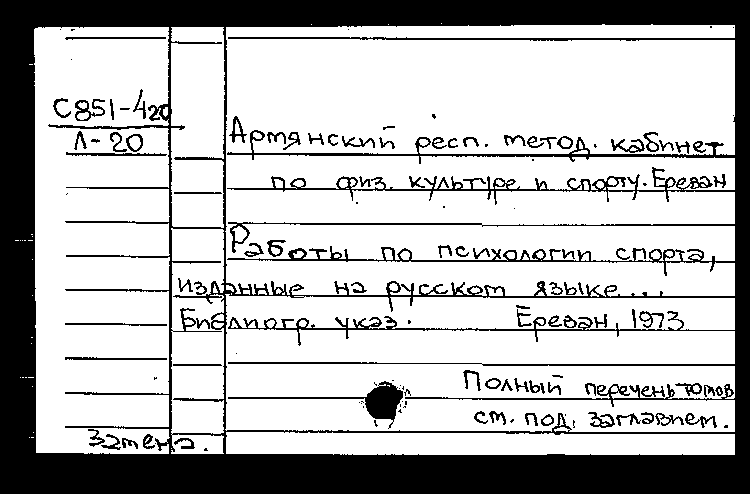 С851-420
Л-20
Армянский респ. метод. кабинет
по физ. культуре и спорту. Ереван
Работы по психологии спорта,
изданные на русском языке...
Библиогр. указ. Ереван, 1973
Полный перечень томов
см. под. заглавием.
Замена.